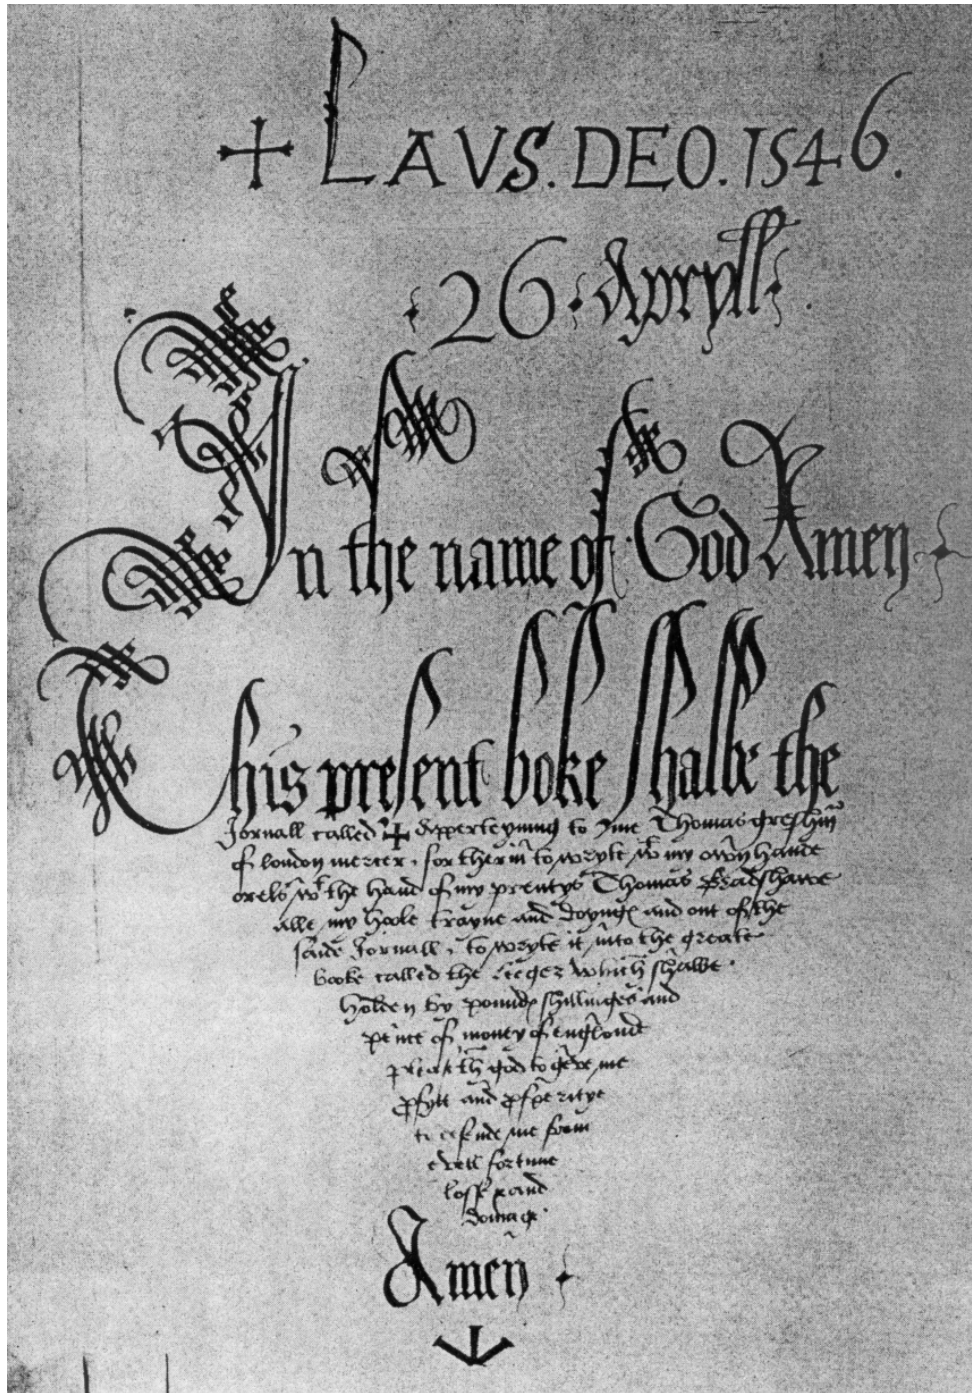 + LAVS. DEO. 1546.
26 Apryll
In the name of God Amen
This present boke shalbe the
Jornall called + Apperteyning to me Thomas Gresham
of london mercer, for therin to wryte, wt my owyn hande
orels wt the hand of my prentys Thomas Bradshawe
alle my hoole trayne and doyng and out of the
saide Jornall, to wryte it into the greate
booke called the Leger which shalbe
holden by pound shillinges and
pence of money of Englond
god to geve me
pfytt and psperitye
defende me from
evell fortune
losse and
domage
Amen